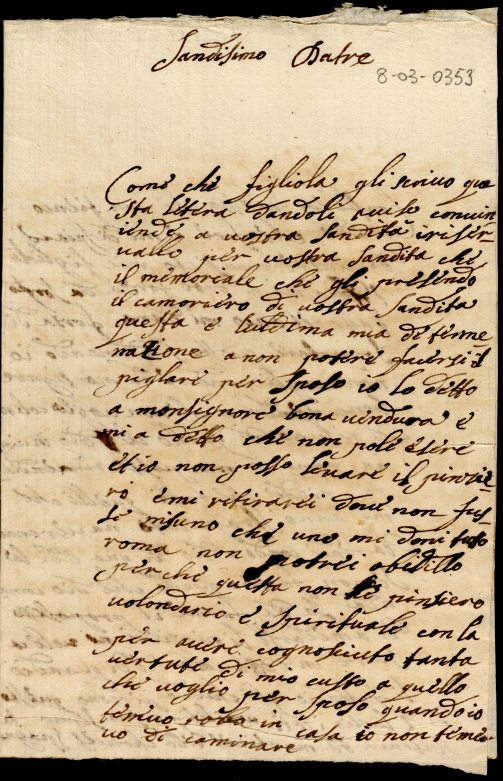 Sandisimo Patre
8-03-0353
Come che figliola gli scrivo que
sta letera dandoli aviso convin
iende a vostra Sandita iriser-
vallo per vostra Sandita che
il memoriale che gli presendo
il camoriero di vostra Sandita
questa e lultima mia determe
natione a non potere facersi il
pigliare per Sposo io lo detto
a monsignore bona vendura e
mi a detto che non pole esere
et io non posso levare il pinsie-
ro e mi ritirarei dove non fus-
se nisuno che uno mi doni tuta
roma non potrei obidillo
perche questa non he pinsiero
volondario e spirituale con la
per avere cognosciuto tanta
vertute di mio custo a quello
che voglio per Sposo quando io
tenevo roba in casa io non teme
vo di caminare